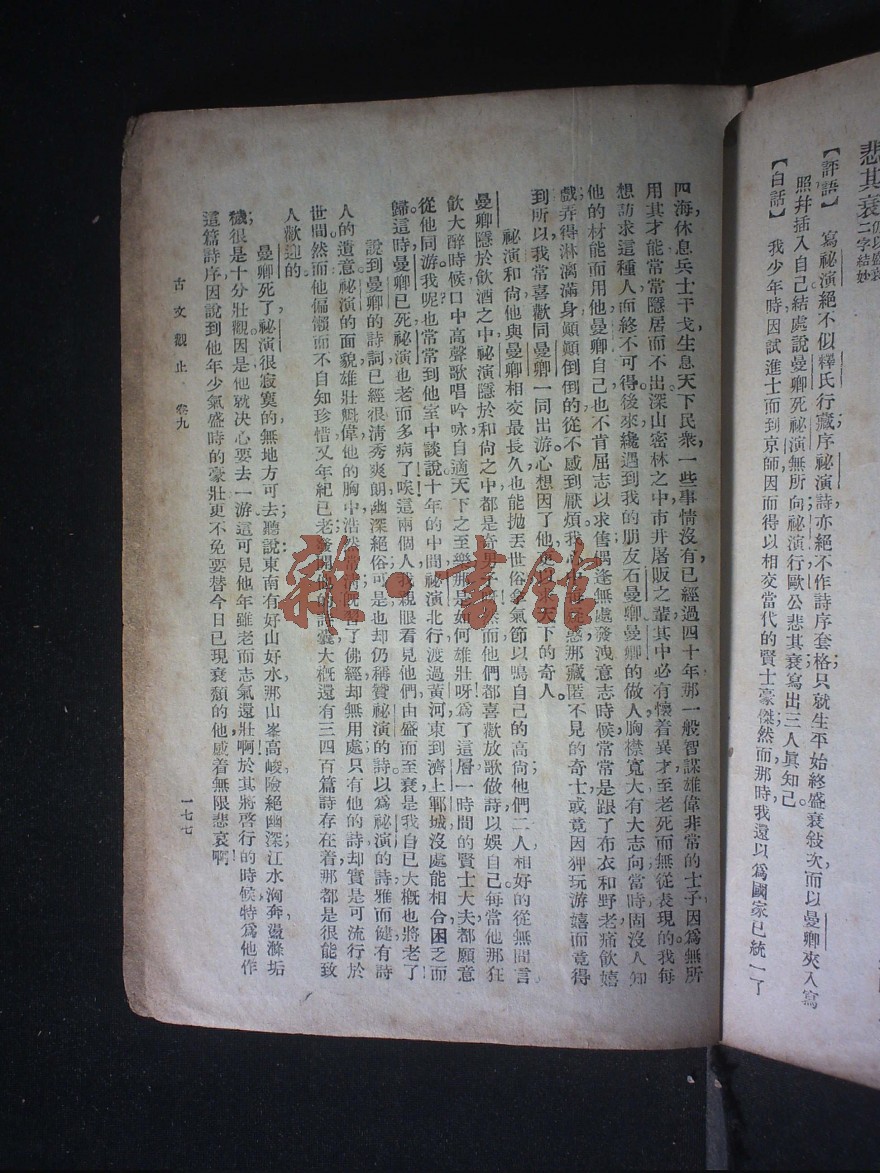 悲其衰
二字結妙
【評語】 寫祕演絕不似釋氏行藏序祕演詩亦絕不作詩序套格只就生平始終盛衰敍次而以曼卿夾入寫
照幷插入自己結處說曼卿死祕演無所向祕演行歐公悲其衰寫出三人眞知己。
【白話】 我少年時因試進士而到京師因而得以相交當代的賢士豪傑然而那時我還以爲國家已統一了
四海休息兵士干戈生息天下民衆一些事情沒有已經過四十年那一般智謀雄偉非常的士子因爲無所
用其才能常常隱居而不出深山密林之中市井屠販之輩其中必有懷着異才至老死而無從表現的我每
想訪求這種人而終不可得後來纔遇到我的朋友石曼卿曼卿的做人胸襟寬大有大志向當時固沒人知
他的材能而用他曼卿自己也不肯屈志以求售偶逢無處發洩意志時候常常是跟了布衣和野老痛飲嬉
戲弄得淋漓滿身顚顚倒倒的從不感到厭煩我 那藏匿不見的奇士或竟因狎玩游嬉而竟得
到所以我常喜歡同曼卿一同出游心想因了他 天下的奇人。
祕演和尙他與曼卿相交最長久也能拋丟世俗 氣節以鳴自己的高尙他們二人相好的從無間言
曼卿隱於飲酒之中祕演隱於和尙之中都是奇男子 然而他們都喜歡放歌做詩以娛自己每當他那狂
飲大醉時候口中高聲歌唱吟咏自適天下之至樂那是如何雄壯呀爲了這層一時間的賢士大夫都願意
從他同游我呢也常常到他室中談說十年的中間祕演北行渡過黃河東到濟上鄆城沒處能相合困乏而
歸這時曼卿已死祕演也老而多病了唉這兩個人我親眼看見他們由盛而至衰是我自己大槪也將老了！
說到曼卿的詩詞已經很淸秀爽朗幽深絕俗可是也却仍稱贊祕演的詩以爲祕演的詩雅而健有詩
人的遺意祕演的面貌雄壯魁偉他的胸中浩然 了佛經却無用處只有他的詩却實是可流行於
世間然而他偏懶而不自知珍惜又年紀已老發開他的詩囊大槪還有三四百篇詩存在着那都是很能致
人歡迎的。
曼卿死了祕演很寂寞的無地方可去聽說東南有好山好水那山峯高峻險絕幽深江水洶奔盪滌垢
穢很是十分壯觀因是他就决心要去一游這可見他年雖老而志氣還壯啊於其將啓行的時候特爲他作
這篇詩序因說到他年少氣盛時的豪壯更不免要替今日已現衰頹的他感着無限悲哀啊！
古文觀止 卷九
一七七
雜·書館